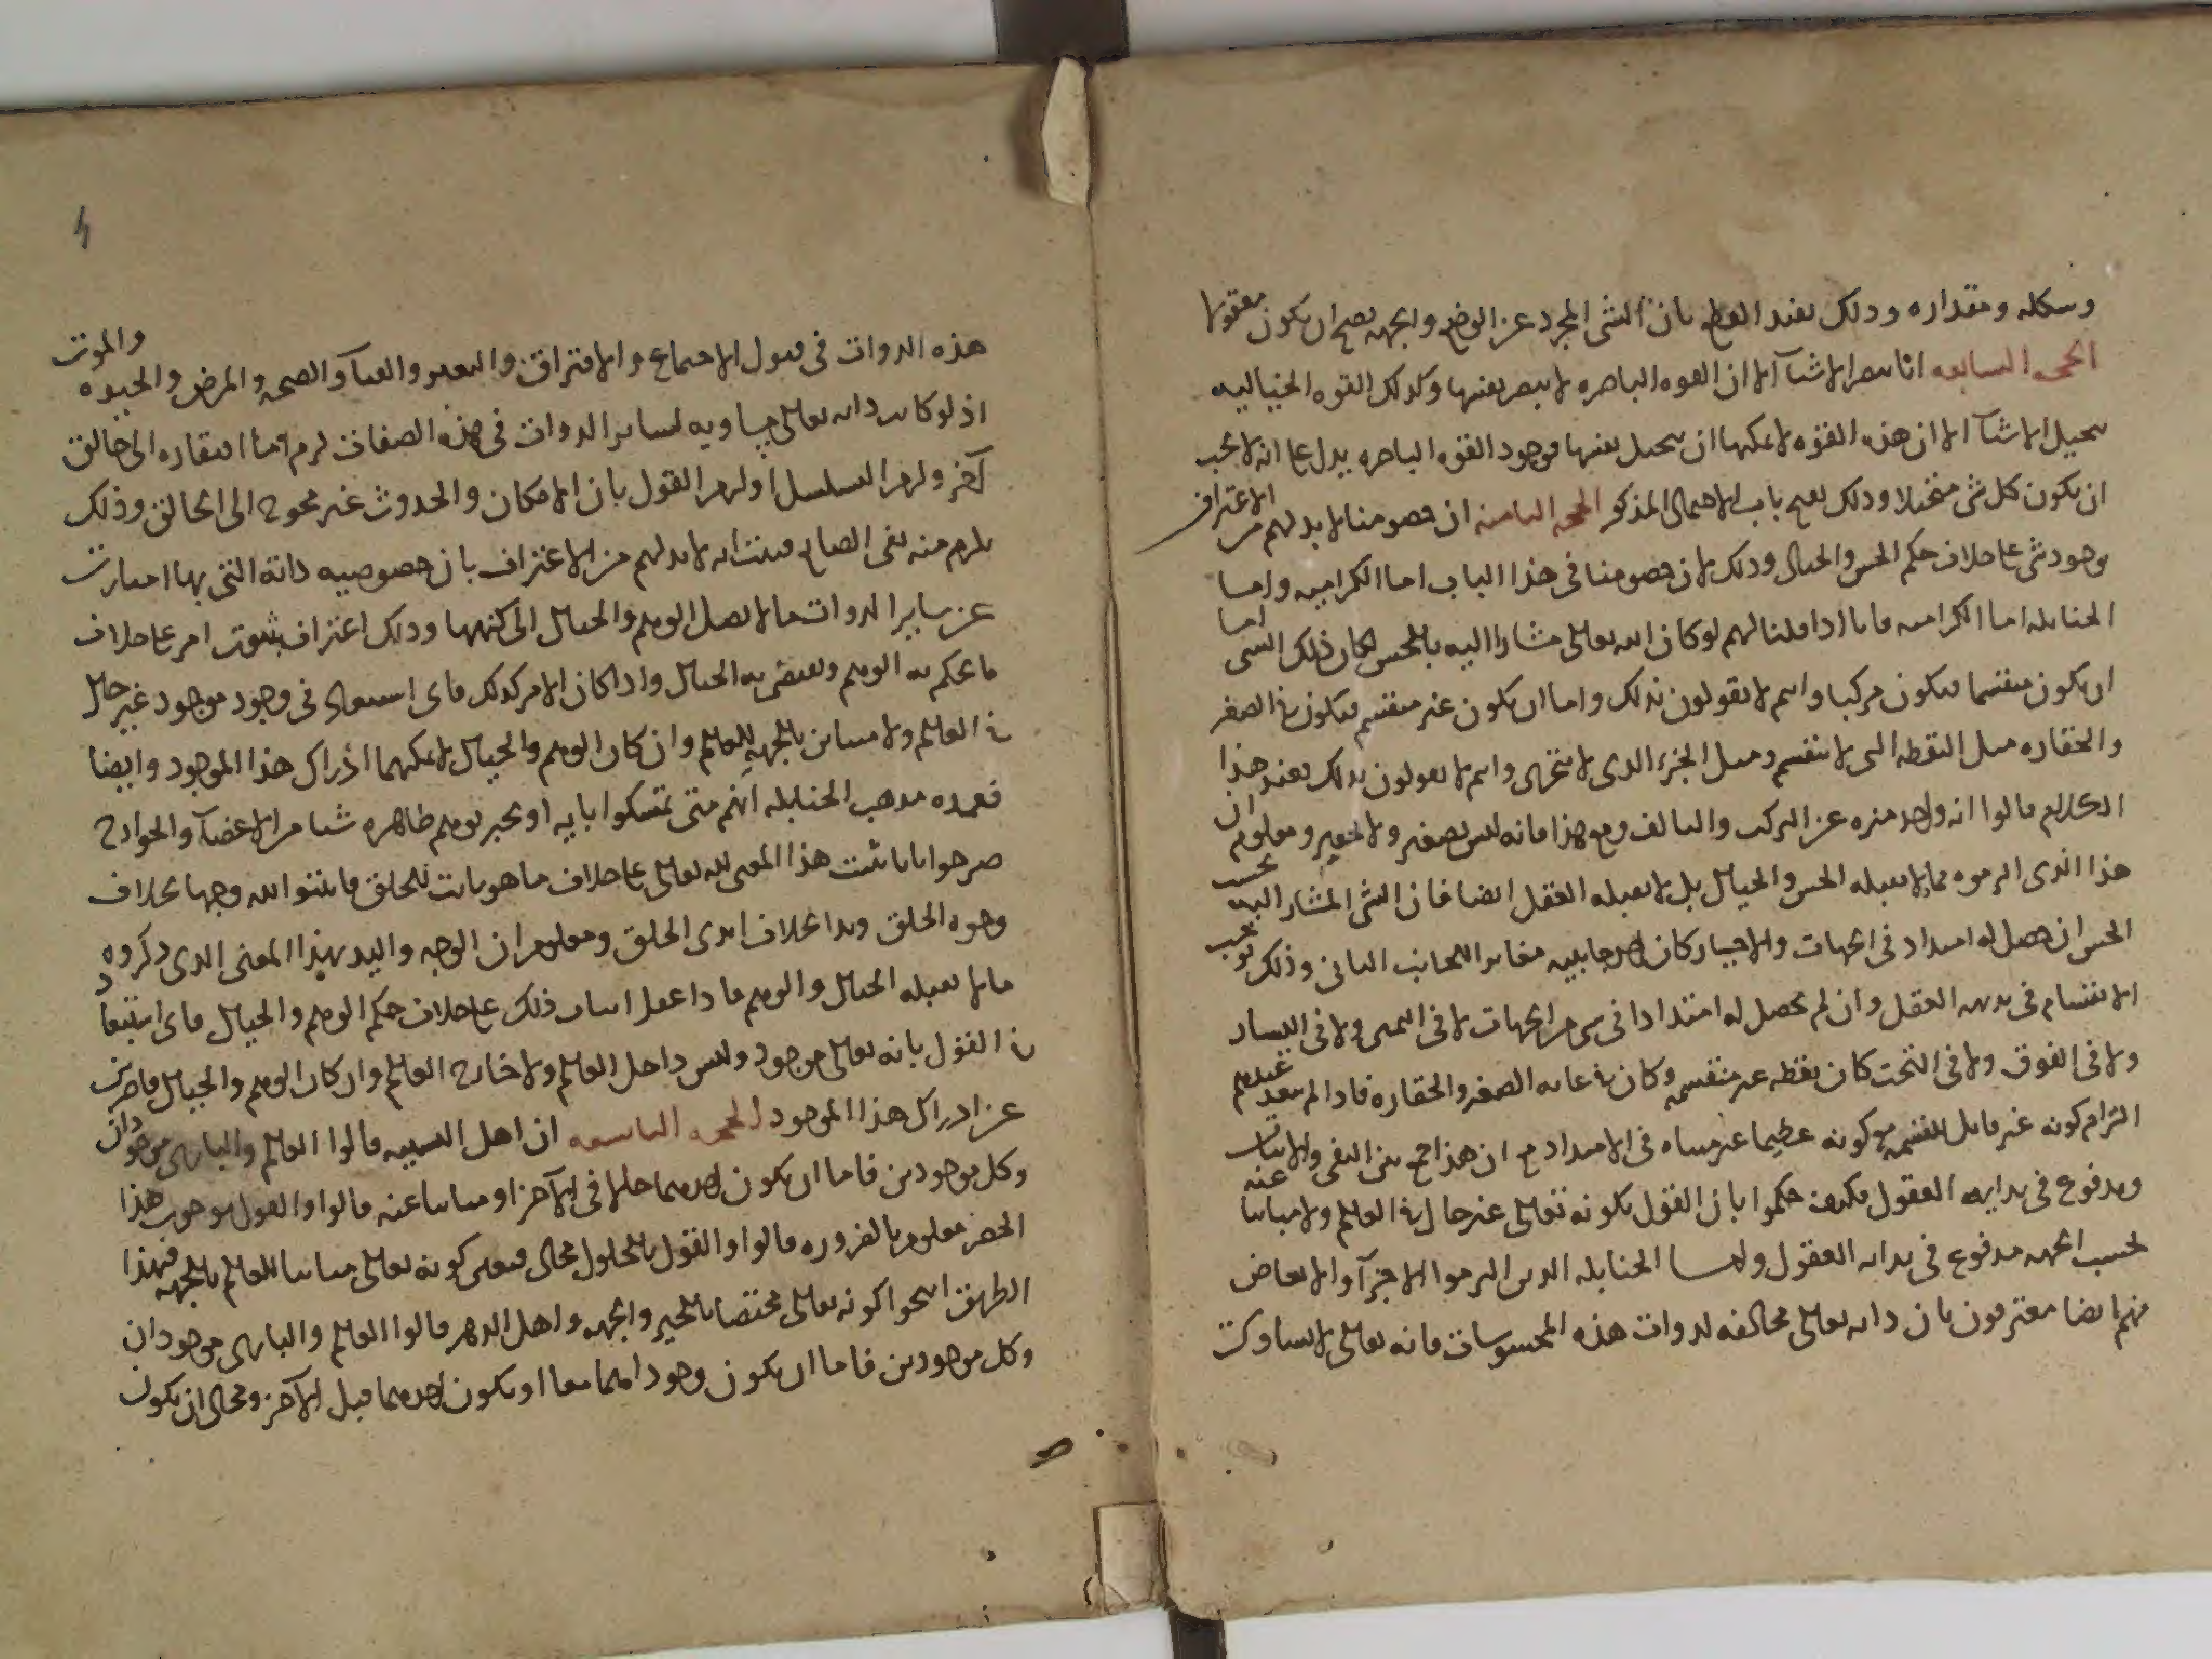 وشكله ومقداره وذلك يفيد القطع بان الشى المجرد عن الوضع والجهه يصح ان يكون معقولا
الحجه السابعه انا نبصر الاشيآ الا ان القوه الباصره لا تبصر نفسها وكذلك القوه الخياليه
تتخيل الاشيآ الا ان هذه القوه لا يمكنها ان تتخيل نفسها فوجود القوه الباصره يدل على انه لا يجب
ان يكون كل شى متخيلا وذلك يفتح باب الاحتمال المذكور الحجه الثامنه ان خصومنا لا بد لهم من الاعتراف
بوجود شى على خلاف حكم الحس والخيال وذلك لان خصومنا فى هذا الباب اما الكراميه واما
الحنابله اما الكراميه فانا اذا قلنا لهم لو كان الله تعالى مشارا اليه بالحس لكان ذلك الشى اما
ان يكون منقسما فيكون مركبا وانتم لا تقولون بذلك واما ان يكون غير منقسم فيكون فى الصغر
والحقاره مثل النقطه التى لا تنقسم ومثل الجزء الذى لا يتجزى وانتم لا تقولون بذلك فعند هذا
الكلام قالوا انه واحد منزه عن التركيب والتاليف ومع هذا فانه ليس بصغير ولا حقير ومعلوم ان
هذا الذى التزموه مما لا يقبله الحس والخيال بل لا يقبله العقل ايضا فان الشى المشار اليه بحسب
الحس ان حصل له امتداد فى الجهات والاحياز كان احد جانبيه مغايرا للجانب الثانى وذلك يوجب
الانقسام فى بديهه العقل وان لم يحصل له امتداد فى شى من الجهات لا فى اليمين ولا فى اليسار
ولا فى الفوق ولا فى التحت كان نقطه غير منقسمه وكان فى غايه الصغر والحقاره فاذا لم يبعد عندهم
التزام كونه غير قابل للقسمه مع كونه عظيما غير متناه فى الامتداد مع ان هذا جمع بين النفى والاثبات
ومدفوع فى بدايه العقول فكيف حكموا بان القول بكونه تعالى غير حال فى العالم ولا مباينا عنه
بحسب الجهه مدفوع فى بدايه العقول واما الحنابله الذين التزموا الاجزآ والابعاض
فهم ايضا معترفون بان ذاته تعالى مخالفه لذوات هذه المحسوسات فانه تعالى لا يساوى
هذه الذوات فى قبول الاجتماع والافتراق والتغير والفنآ والصحه والمرض والحيوه والموت
اذ لو كانت ذاته تعالى مساويه لساير الذوات فى هذه الصفات لزم اما افتقاره الى خالق
آخر ولزم التسلسل او لزم القول بان الامكان والحدوث غير محوج الى الخالق وذلك
يلزم منه نفى الصانع فثبت انه لا بد لهم من الاعتراف بان خصوصيه ذاته التى بها امتازت
عن ساير الذوات ما لا يصل الوهم والخيال الى كنهها وذلك اعتراف بثبوت امر على خلاف
ما يحكم به الوهم ويقضى به الخيال واذا كان الامر كذلك فاى استبعاد فى وجود موجود غير حال
فى العالم ولا مباين بالجهه للعالم وان كان الوهم والخيال لا يمكنهما ادراك هذا الموجود وايضا
فعمده مذهب الحنابله انهم متى تمسكوا بايه او بخبر يوهم ظاهره شيا من الاعضآ والجوارح
صرحوا بانا نثبت هذا المعنى لله تعالى على خلاف ما هو ثابت للخلق فاثبتوا لله وجها بخلاف
وجوه الخلق ويدا بخلاف ايدى الخلق ومعلوم ان الوجه واليد بهذا المعنى الذى ذكروه
مما لا يقبله الخيال والوهم فاذا عقل اثبات ذلك على خلاف حكم الوهم والخيال فاى استبعاد
فى القول بانه تعالى موجود وليس داخل العالم ولا خارج العالم وان كان الوهم والخيال قاصرين
عن ادراك هذا الموجود الحجه التاسعه ان اهل التشبيه قالوا العالم والبارى موجودان
وكل موجودين فاما ان يكون احدهما حالا فى الآخر او مباينا عنه قالوا والقول بوجوب هذا
الحصر معلوم بالضروره قالوا والقول بالحلول محال فتعين كونه تعالى مباينا للعالم بالجهه فبهذا
الطريق انتجوا كونه تعالى مختصا بالحيز والجهه واهل الدهر قالوا العالم والبارى موجودان
وكل موجودين فاما ان يكون وجودهما معا او يكون احدهما قبل الآخر ومحال ان يكون